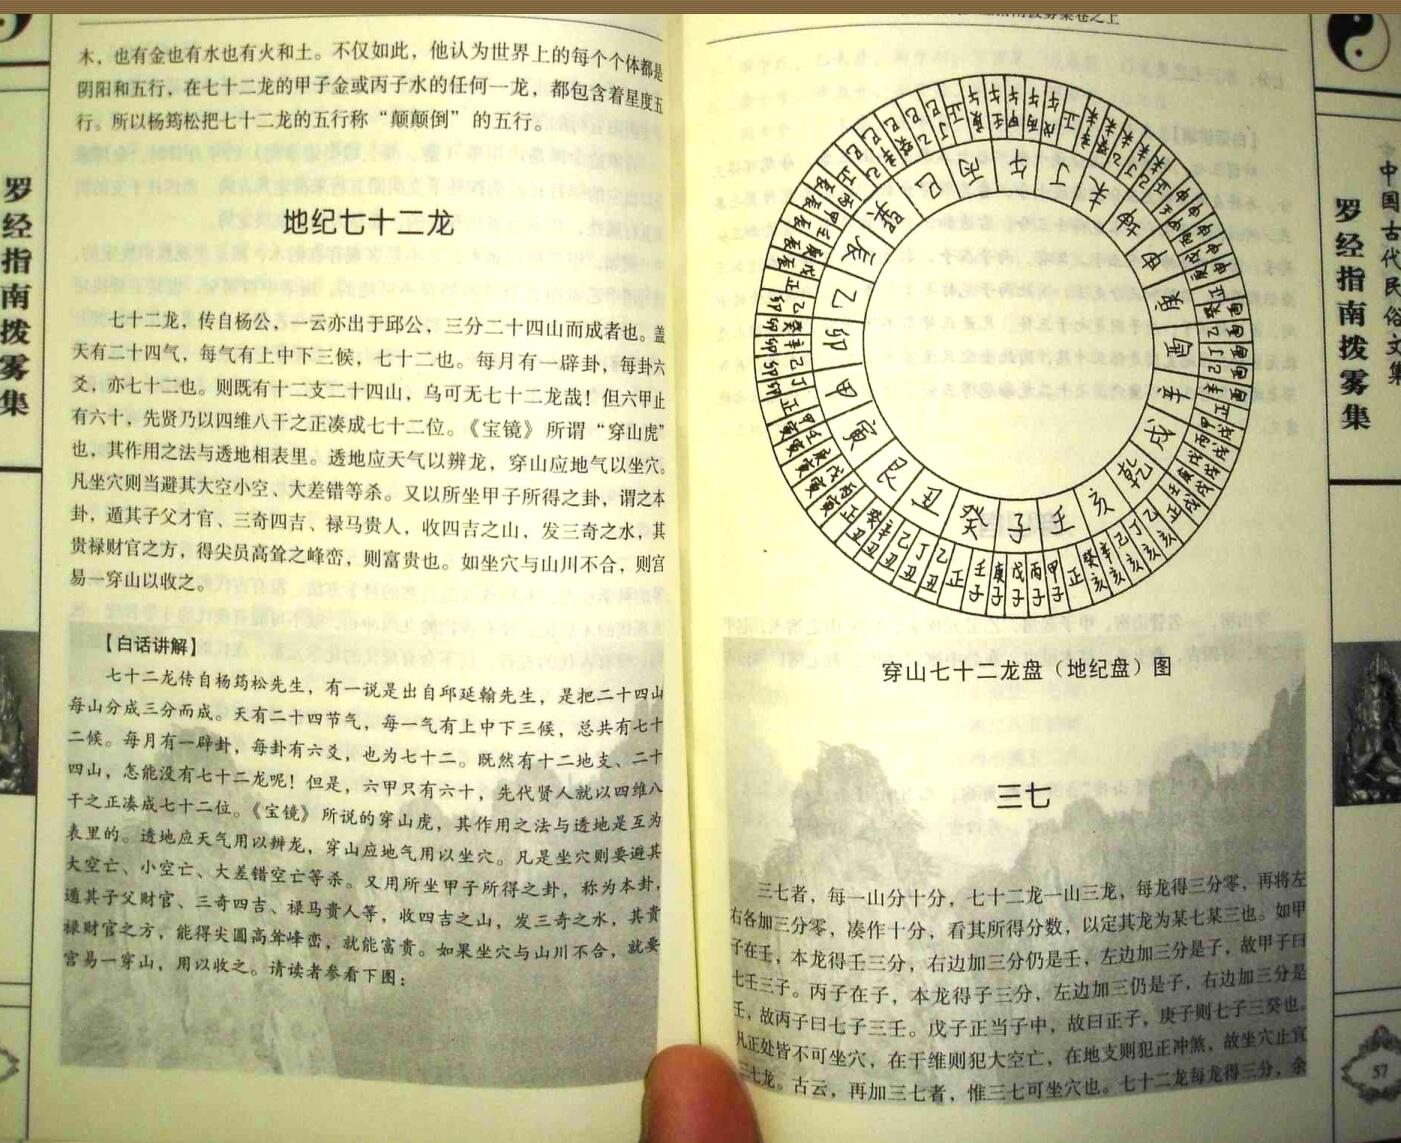 罗经指南拨雾集
木，也有金也有水也有火和土。不仅如此，他认为世界上的每个个体都是
阴阳和五行，在七十二龙的甲子金或丙子水的任何一龙，都包含着星度五
行。所以杨筠松把七十二龙的五行称“颠颠倒”的五行。
地纪七十二龙
七十二龙，传自杨公，一云亦出于邱公，三分二十四山而成者也。盖
天有二十四气，每气有上中下三候，七十二也。每月有一辟卦，每卦六
爻，亦七十二也。则既有十二支二十四山，乌可无七十二龙哉！但六甲止
有六十，先贤乃以四维八干之正凑成七十二位。《宝镜》所谓“穿山虎”
也，其作用之法与透地相表里。透地应天气以辨龙，穿山应地气以坐穴。
凡坐穴则当避其大空小空、大差错等杀。又以所坐甲子所得之卦，谓之本
卦，遁其子父才官、三奇四吉、禄马贵人，收四吉之山，发三奇之水，其
贵禄财官之方，得尖员高耸之峰峦，则富贵也。如坐穴与山川不合，则宫
易一穿山以收之。
【白话讲解】
七十二龙传自杨筠松先生，有一说是出自邱延翰先生，是把二十四山
每山分成三分而成。天有二十四节气，每一气有上中下三候，总共有七十
二候。每月有一辟卦，每卦有六爻，也为七十二。既然有十二地支、二十
四山，怎能没有七十二龙呢！但是，六甲只有六十，先代贤人就以四维八
干之正凑成七十二位。《宝镜》所说的穿山虎，其作用之法与透地是互为
表里的。透地应天气用以辨龙，穿山应地气用以坐穴。凡是坐穴则要避其
大空亡、小空亡、大差错空亡等杀。又用所坐甲子所得之卦，称为本卦，
遁其子父财官、三奇四吉、禄马贵人等，收四吉之山，发三奇之水，其贵
禄财官之方，能得尖圆高耸峰峦，就能富贵。如果坐穴与山川不合，就要
宫易一穿山，用以收之。请读者参看下图：
午
丁
未
坤
申
庚
酉
辛
戌
乾
亥
壬
子
癸
丑
艮
寅
甲
卯
乙
辰
巽
巳
丙
穿山七十二龙盘（地纪盘）图
三七
三七者，每一山分十分，七十二龙一山三龙，每龙得三分零，再将左
右各加三分零，凑作十分，看其所得分数，以定其龙为某七某三也。如甲
子在壬，本龙得壬三分，右边加三分仍是壬，左边加三分是子，故甲子曰
七壬三子。丙子在子，本龙得子三分，左边加三仍是子，右边加三分是
壬，故丙子曰七子三壬。戊子正当子中，故曰正子，庚子则七子三癸也。
凡正处皆不可坐穴，在干维则犯大空亡，在地支则犯正冲煞，故坐穴止宜
三七龙。古云，再加三七者，惟三七可坐穴也。七十二龙每龙得三分，余
中国古代民俗文集
罗经指南拨雾集
57